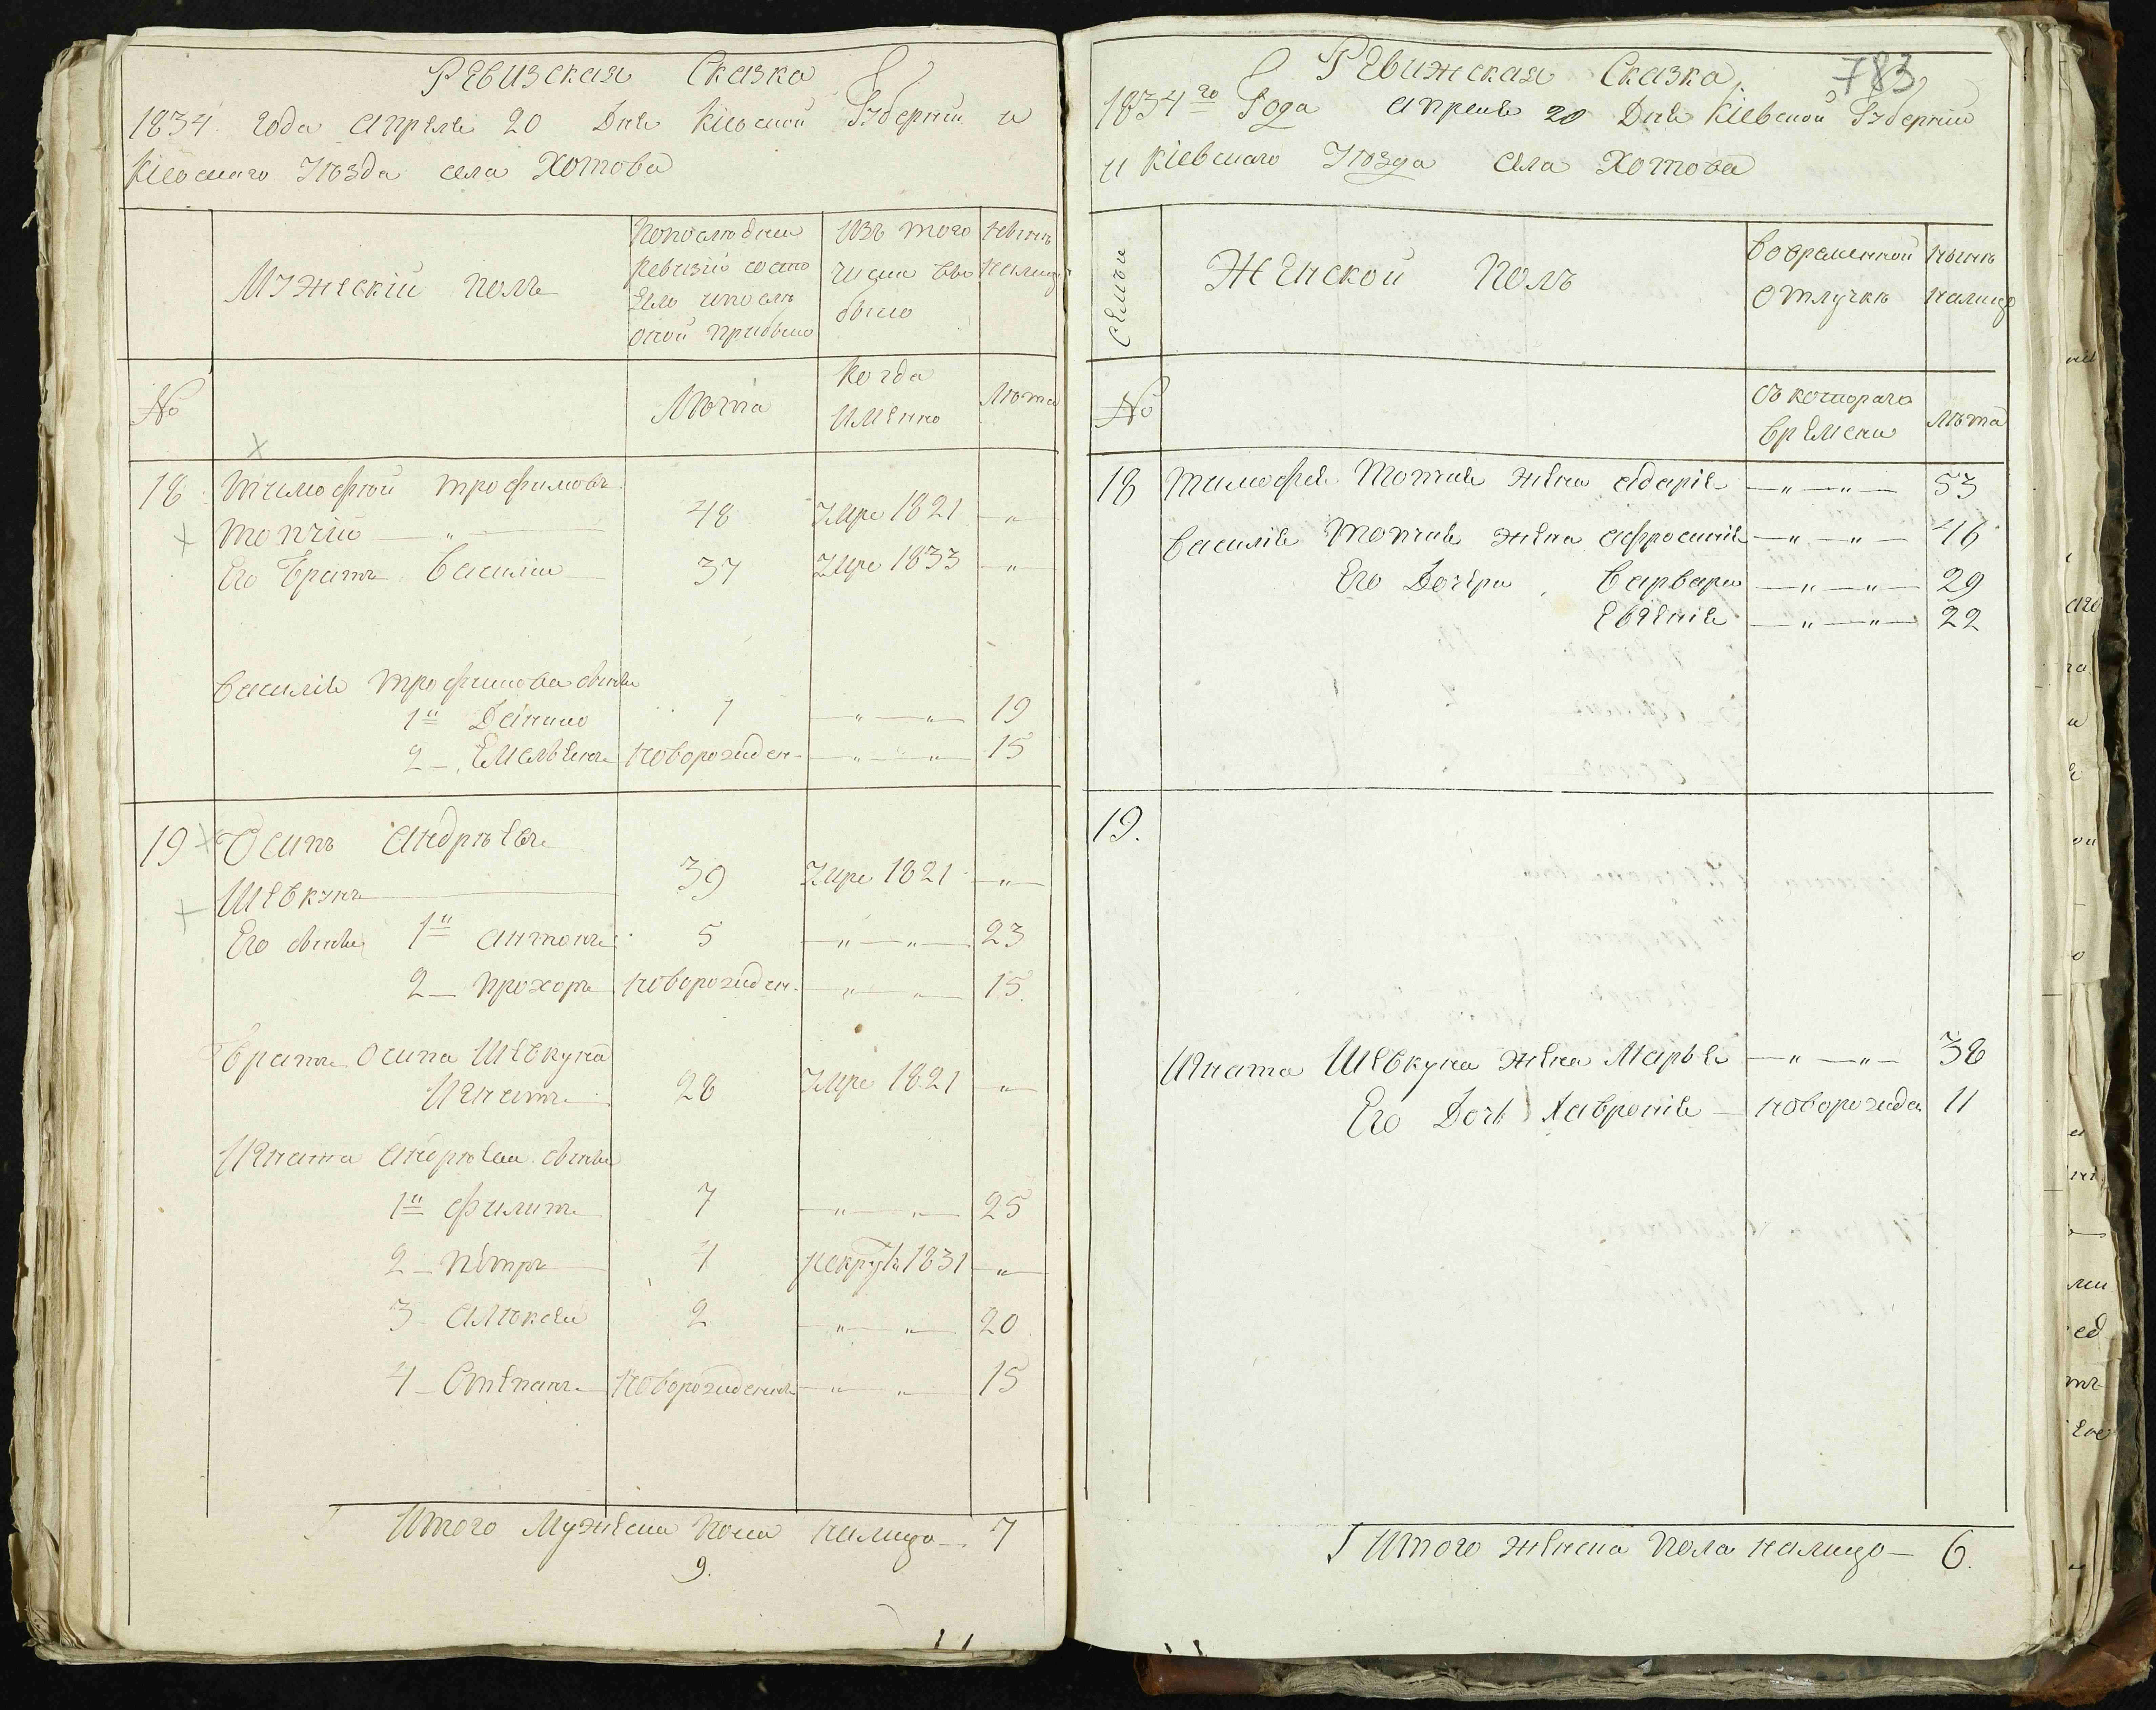 Ревизская Сказка
1834 года Апреля 20 Дня Кіевской Губерніи и
Кіевскаго Уѣзда села Хотова
Мужескій полъ
Попоследней
Ревизіи состо
яло ипослѣ
оной прибыло
Изъ того
числа выбыло
Нынѣ
налицо
№
Лѣта
Когда
Именно
Лѣта
18 Тимофѣй Трофимовъ
Топчій — " — 48 Умре 1821 — " —
Его Братъ Василій 37 Умре 1833 — " —
Василія Трофимова сынья
1й Данило 7 — " — " — 19
2 — Емельянъ новорожден — " — " — 15
19 Осипъ Андрѣевъ
Шевкунъ 39 Умре 1821 — " —
Его сынья 1й Антонъ 5 — " — " — 23
2 — Прохоръ новорожден — " — " — 15
Братъ Осипа Шевкуна
Игнатъ 28 Умре 1821 — " —
Игната Андрѣева сынья
1й Филипъ 7 — " — " — 25
2 — Пётръ 4 рекрутъ 1831 — " —
3 — Алѣксѣй 2 — " — " — 20
4 — Степанъ новорожденъ — " — " — 15
Итого Мужеска пола налицо — 7
9.
783
Ревижская Сказка
1834го Года Апреля 20 Дня Кіевской Губерніи
и Кіевскаго Уѣзда села Хотова
Семьи
Женской полъ
Вовременной
отлучкѣ
Нынѣ
налицо
№
Съ котораго
времени
Лѣта
18 Тимофея Топчія жена Дарія — " — " — 53
Василія Топчія жена Афросинія — " — " — 46
Его Дочери Варвара — " — " — 29
Евгенія — " — " — 22
19.
Игната Шевкуна жена Марья — " — " — 38
Его Дочь Хавронія — новорожден 11
Итого женска пола налицо — 6.